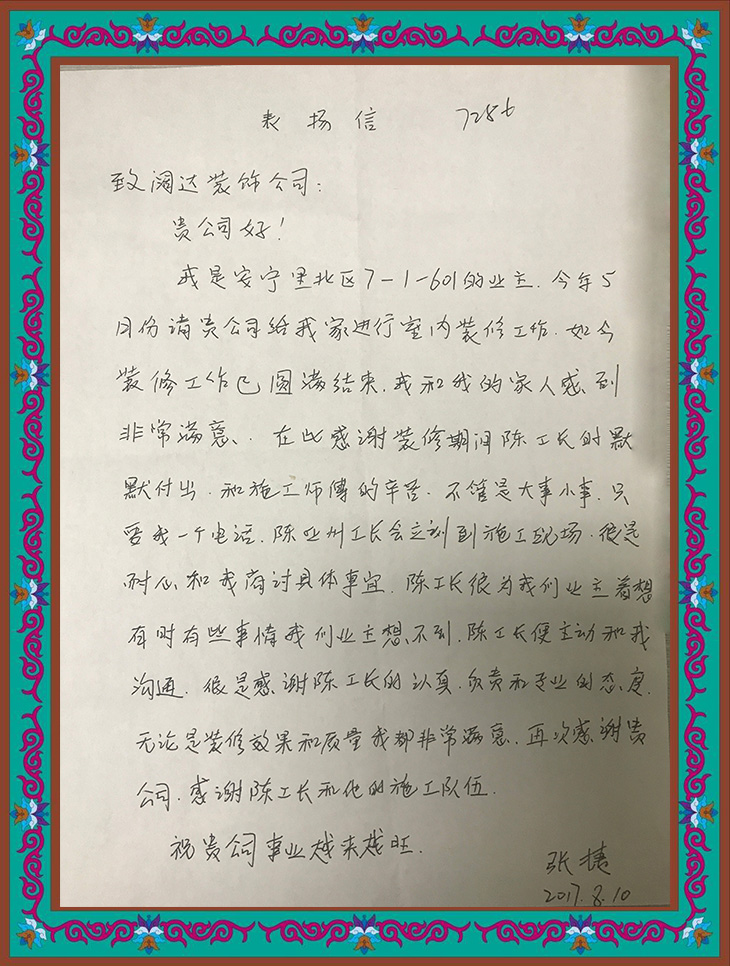 表扬信 7286
致阔达装饰公司：
贵公司好！
我是安宁里北区7-1-601的业主.今年5
月份请贵公司给我家进行室内装修工作.如今
装修工作已圆满结束.我和我的家人感到
非常满意.在此感谢装修期间陈工长的默
默付出.和施工师傅的辛苦.不管是大事小事.只
要我一个电话.陈亚州工长会立刻到施工现场.很是
耐心和我商讨具体事宜.陈工长很为我们业主着想
有时有些事情我们业主想不到.陈工长便主动和我
沟通.很是感谢陈工长的认真.负责和专业的态度.
无论是装修效果和质量我都非常满意.再次感谢贵
公司.感谢陈工长和他的施工队伍.
祝贵公司事业越来越旺.
张捷
2017.8.10